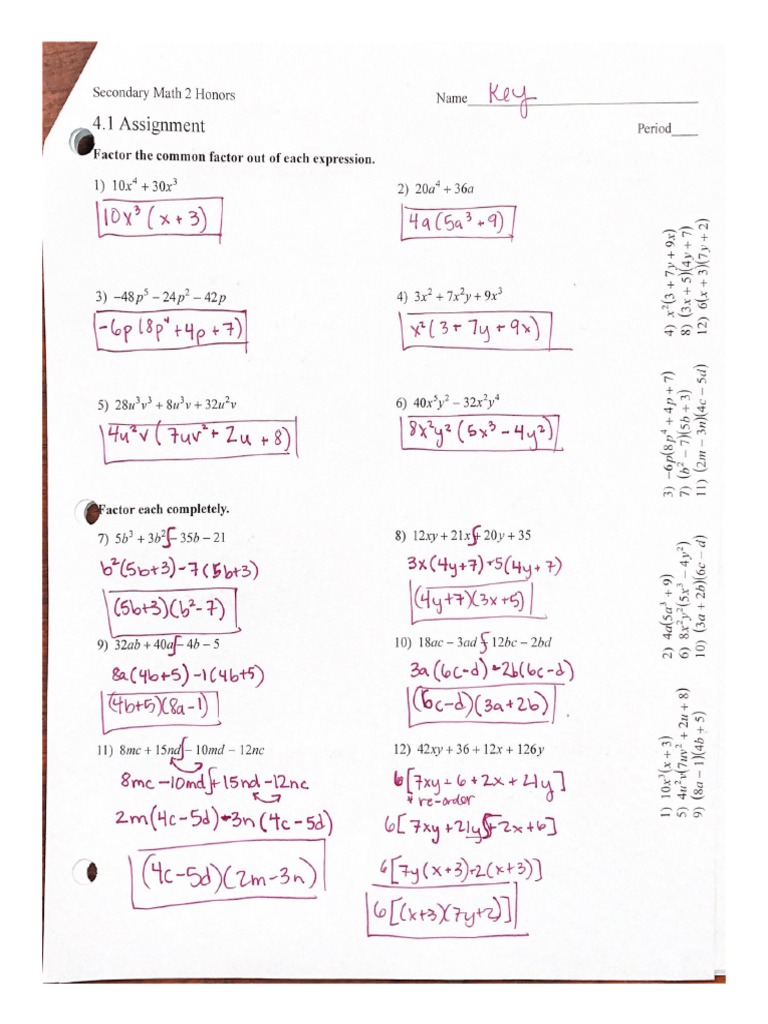 Secondary Math 2 Honors
Name Key
4.1 Assignment
Period
Factor the common factor out of each expression.
1) 10x⁴ + 30x³
10x³(x + 3)
2) 20a⁴ + 36a
4a(5a³ + 9)
3) −48p⁵ − 24p² − 42p
-6p(8p⁴ + 4p + 7)
4) 3x² + 7x²y + 9x³
x²(3 + 7y + 9x)
5) 28u³v³ + 8u³v + 32u²v
4u²v(7uv² + 2u + 8)
6) 40x⁵y² − 32x²y⁴
8x²y²(5x³ - 4y²)
Factor each completely.
7) 5b³ + 3b² − 35b − 21
b²(5b+3) - 7(5b+3)
(5b+3)(b²-7)
8) 12xy + 21x + 20y + 35
3x(4y+7)+5(4y+7)
(4y+7)(3x+5)
9) 32ab + 40a − 4b − 5
8a(4b+5) -1(4b+5)
(4b+5)(8a-1)
10) 18ac − 3ad + 12bc − 2bd
3a(6c-d)+2b(6c-d)
(6c-d)(3a+2b)
11) 8mc + 15nd − 10md − 12nc
8mc -10md +15nd -12nc
2m(4c-5d)-3n(4c-5d)
(4c-5d)(2m-3n)
12) 42xy + 36 + 12x + 126y
6[7xy + 6 + 2x + 21y]
* re-order
6[7xy + 21y + 2x + 6]
6[7y(x+3)+2(x+3)]
6[(x+3)(7y+2)]
1) 10x³(x + 3)
2) 4a(5a³ + 9)
3) −6p(8p⁴ + 4p + 7)
4) x²(3 + 7y + 9x)
5) 4u²v(7uv² + 2u + 8)
6) 8x²y²(5x³ − 4y²)
7) (b² − 7)(5b + 3)
8) (3x + 5)(4y + 7)
9) (8a − 1)(4b + 5)
10) (3a + 2b)(6c − d)
11) (2m − 3n)(4c − 5d)
12) 6(x + 3)(7y + 2)